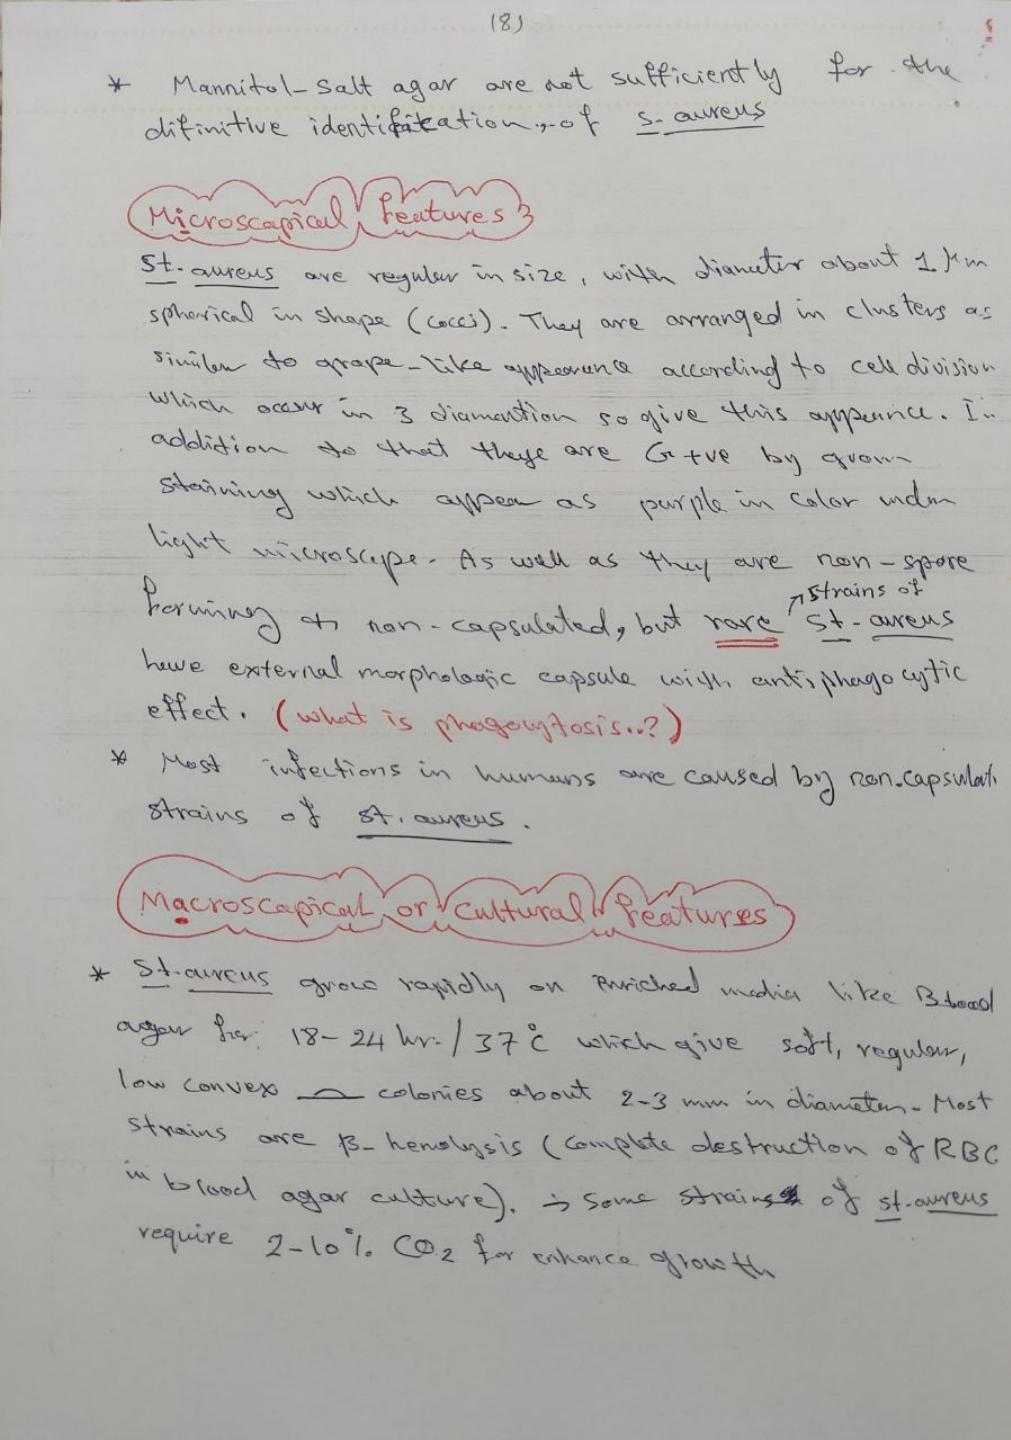 (8)
* Mannitol-salt agar are not sufficiently for the
difinitive identification, of S. aureus
Microscapical features
St. aureus are regular in size, with diametir about 1 μm
spherical in shape (cocci). They are arranged in clusters as
similar to grape-like appearance according to cell division
which occur in 3 diamention so give this apperince. In
addition to that theye are G+ve by gram
staining which appear as purple in color under
light microscope. As well as they are non-spore
forming & non-capsulated, but rare strains of St. aureus
have external morphologic capsule with antiphagocytic
effect. (what is phagocytosis..?)
* Most infections in humans are caused by non.capsulat
strains of st. aureus.
Macroscapical or cultural features
* St. aureus grow rapidly on enriched media like Blood
agar for 18-24 hr. / 37 °c which give soft, regular,
low convex colonies about 2-3 mm in diameter. Most
strains are β-hemolysis (complete destruction of RBC
in blood agar culture). → Some strains of st. aureus
require 2-10% CO2 for enhance growth